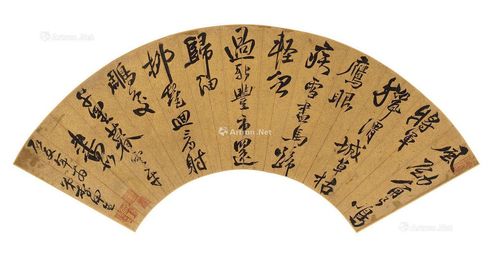 風勁角弓鳴
將軍
獵渭城草枯
鷹眼
疾雪盡馬蹄
輕忽
過新豐市還
歸細
柳營回看射
鵰處
千里暮雲平
Artron.Net
Artron.Net
Artron.Net